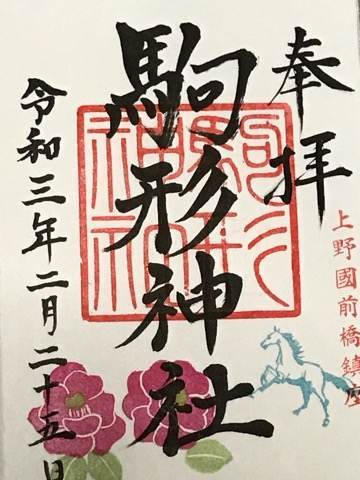 奉拝
上野國前橋鎮座
駒形神社
駒形神社
令和三年二月二十五日